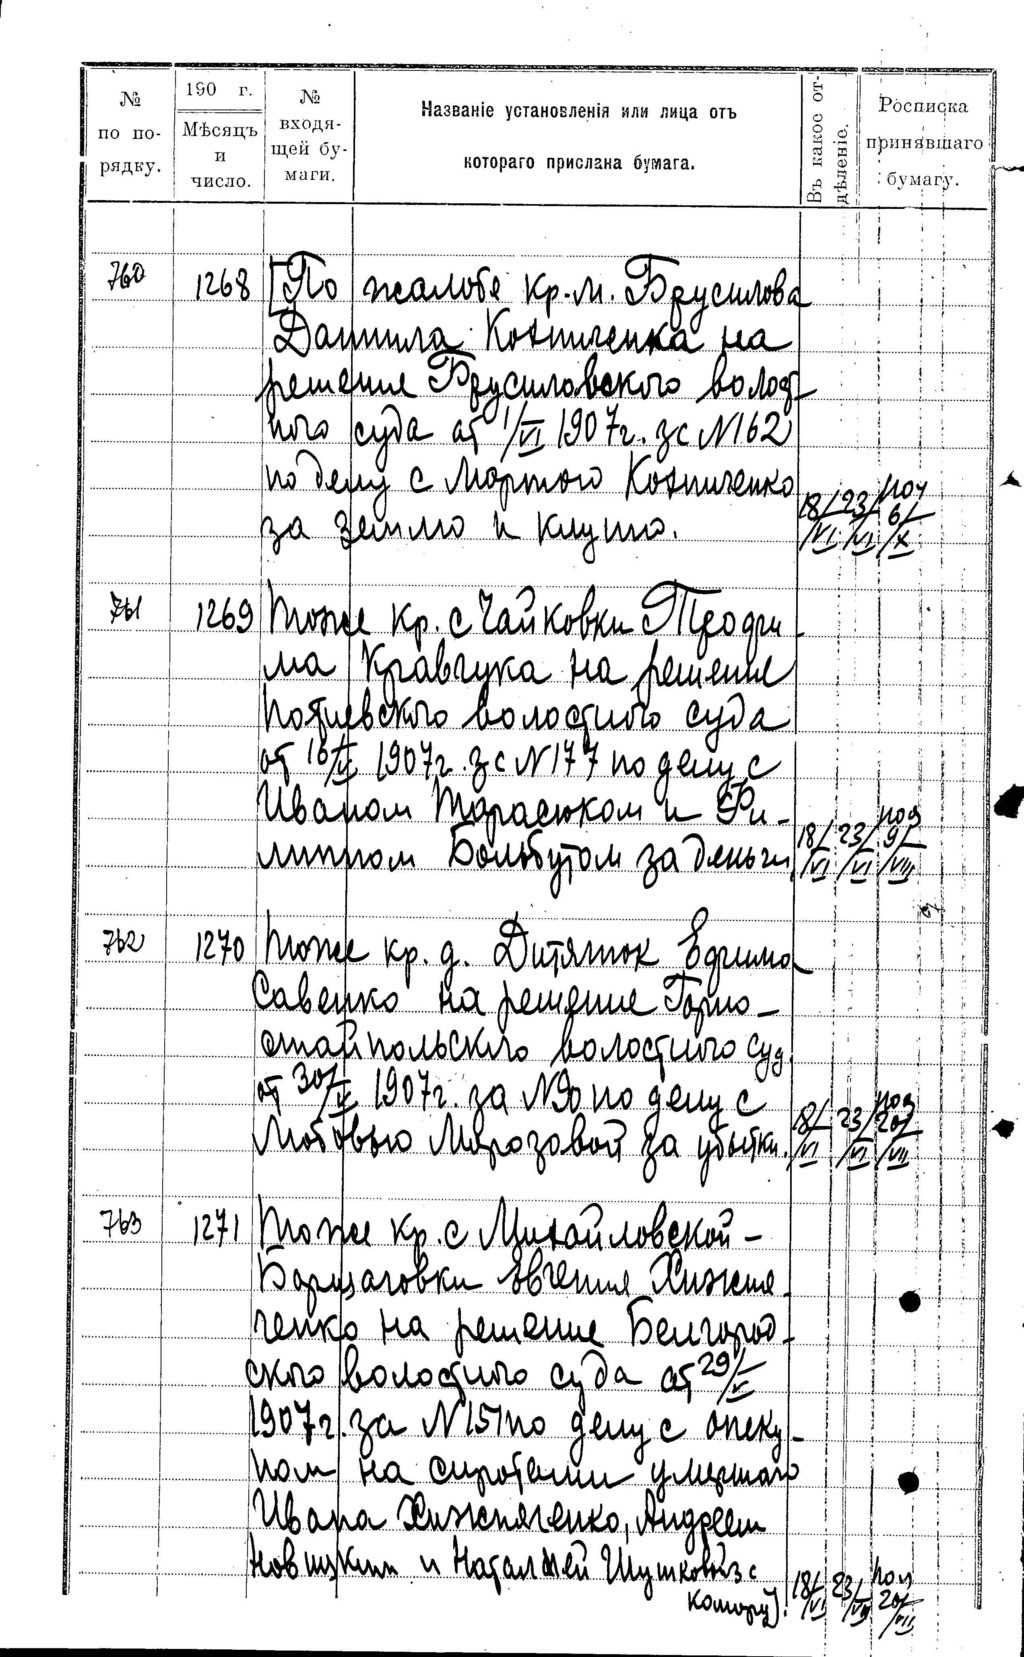 № по порядку.
190 г.
Мѣсяцъ и число.
№ входящей бумаги.
Названіе установленія или лица отъ
котораго прислана бумага.
Въ какое отдѣленіе.
Росписка принявшаго бумагу.
760 1268 [По жалобе кр. м. Брусилова
Даниила на
решение Брусиловского волост-
ного суда от 1/VI 1907г. за №162
по делу с Мартою
за землю и клуню. 18/VI 23/VI 6/X
761 1269 тоже кр. с Чайковки Трофи-
ма Кравчука на решение
Потиевского волостного суда
от 16/V 1907г. за №177 по делу с
Иваном Тарасюком и Фи-
липпом Бальбутом за деньги 18/VI 23/VI 9/VIII
762 1270 тоже кр. д. Дитяток Ефима
Савенко на решение Горно-
стайпольского волостного суд
от 30/V 1907г. за №90 по делу с
Любовью Морозовой за убытки. 18/VI 23/VI 20/VII
763 1271 тоже кр. с Михайловской-
Борщаговки Евгения Хижня-
ченко на решение Белгород-
ского волостного суда от 29/V
1907г. за №151 по делу с опеку-
ном на сиротами умершаго
Ивана Хижняченко, Андреем
и Наталией с
коморы]. 18/VI 20/VII